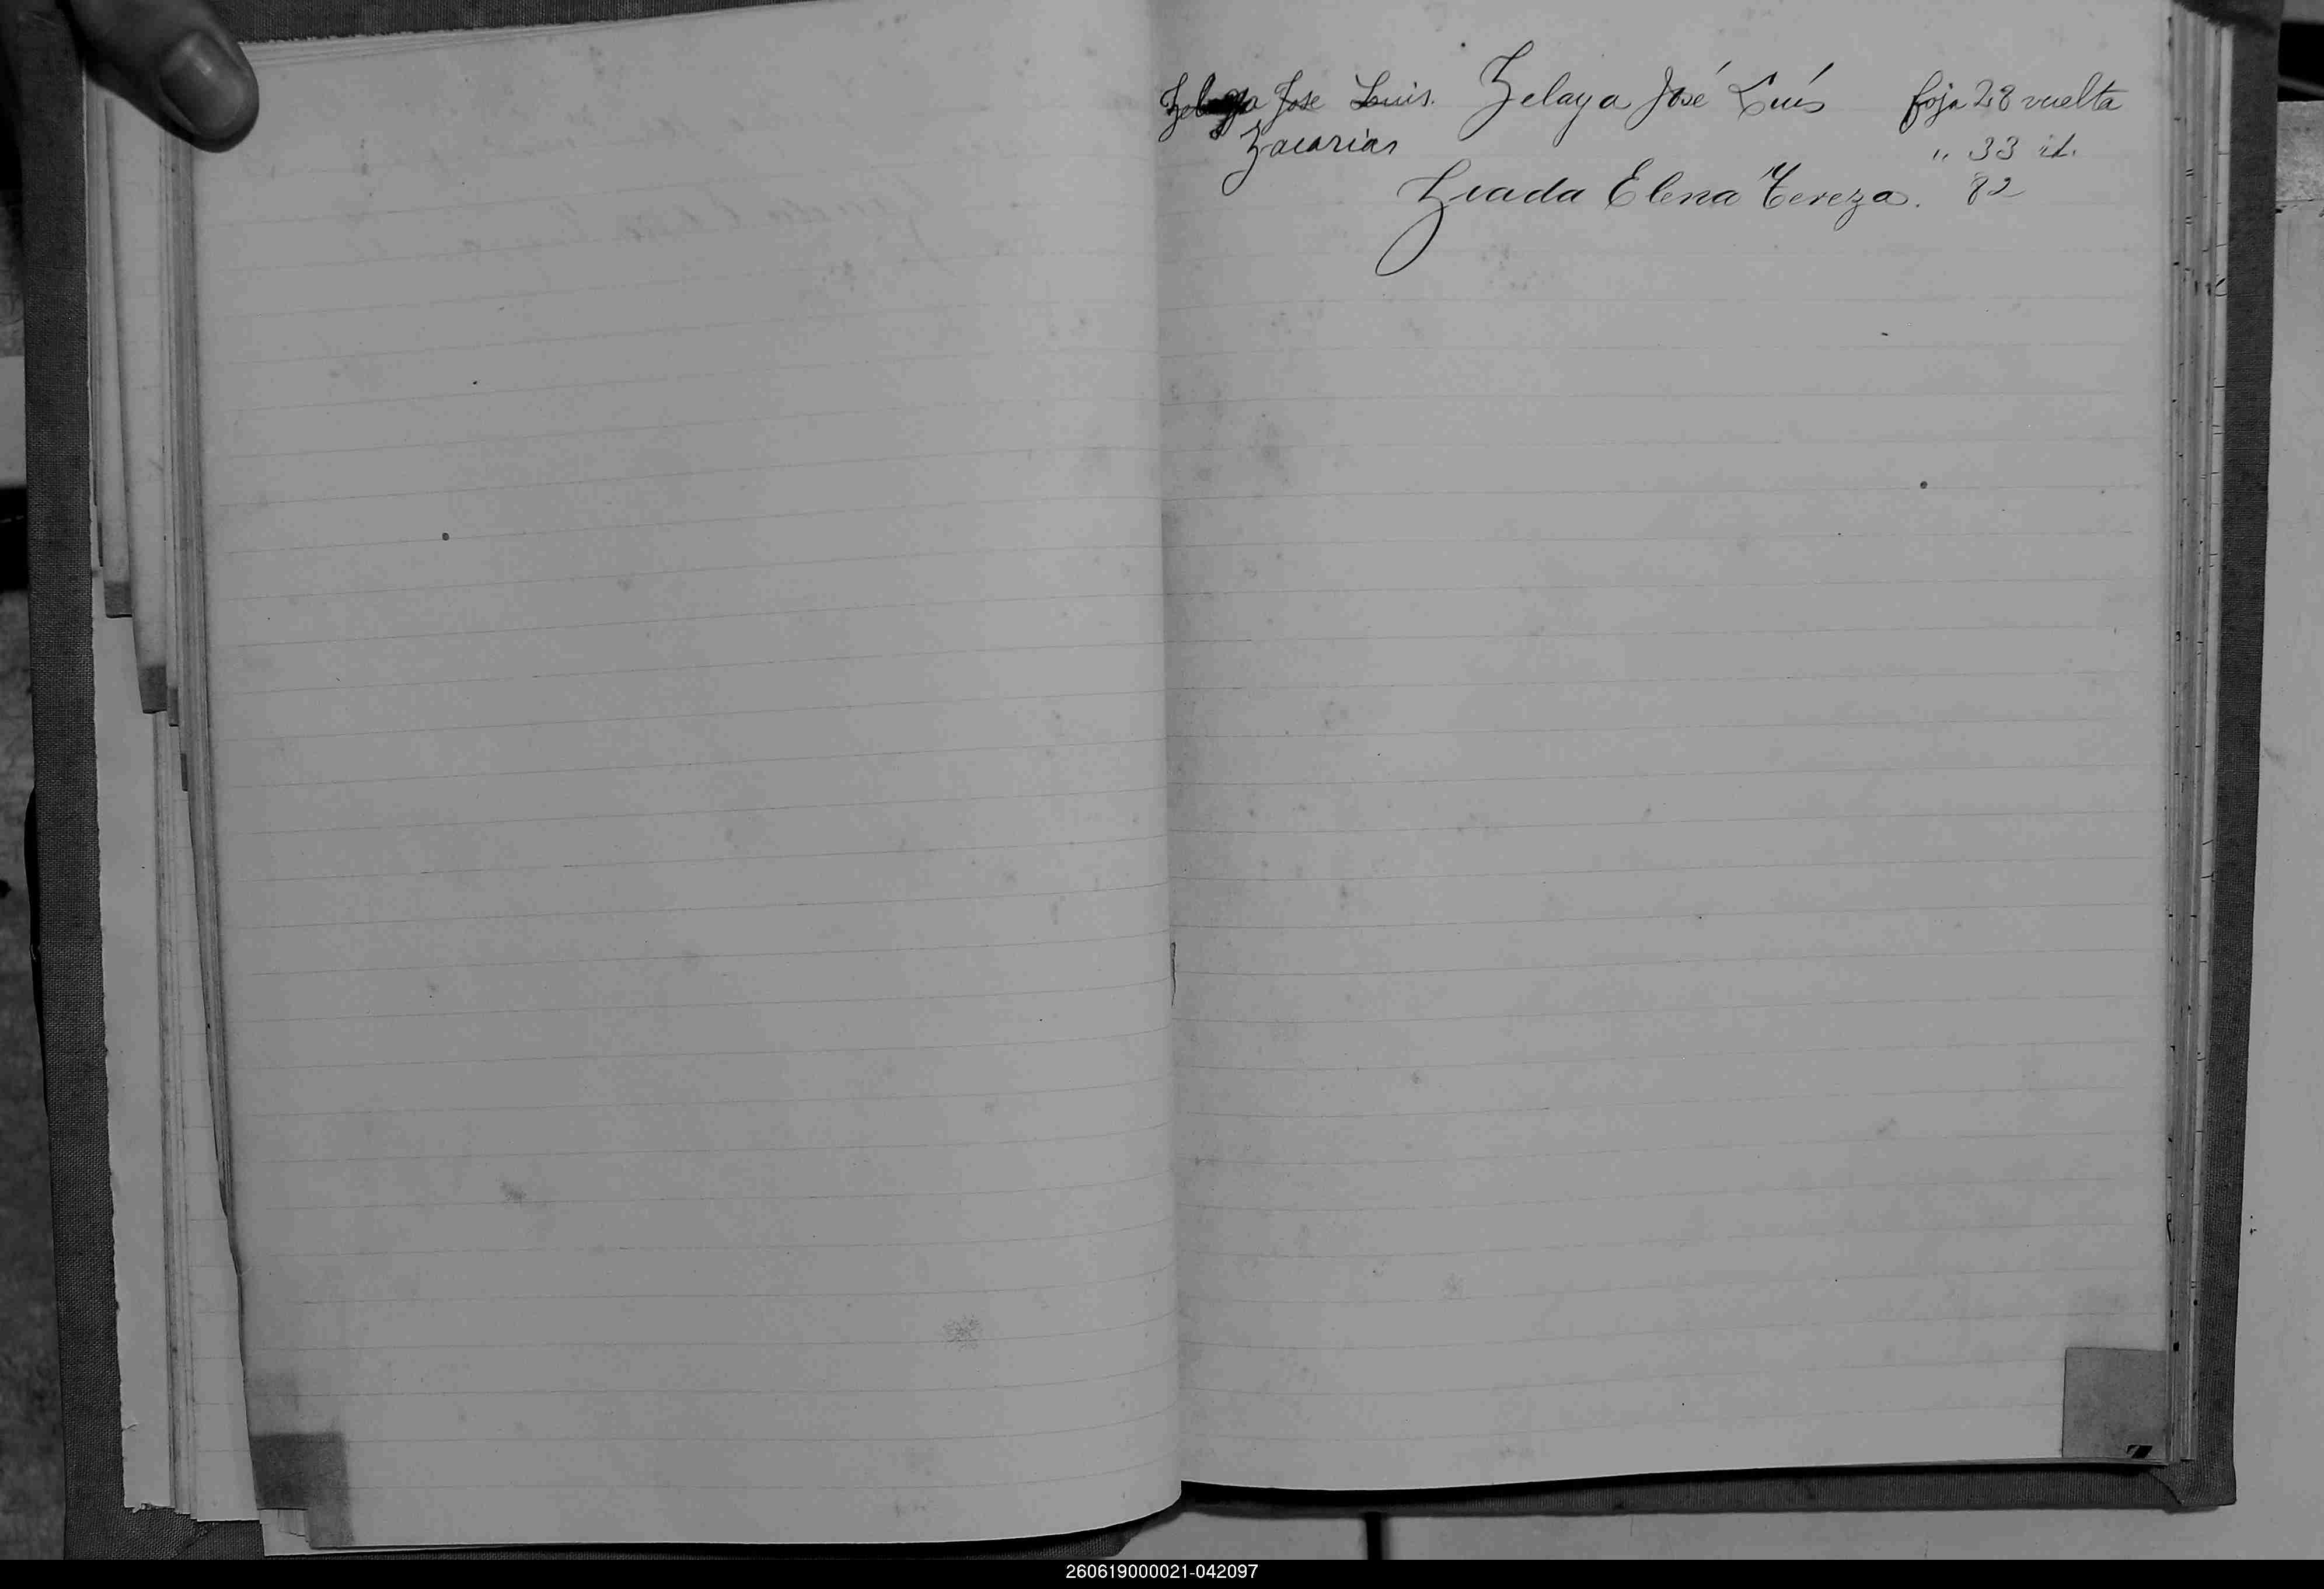 Zelaya Jose Luis. Zelaya José Luís foja 28 vuelta
Zacarias " 33 id.
Zuada Elena Tereza. 82
260619000021-042097